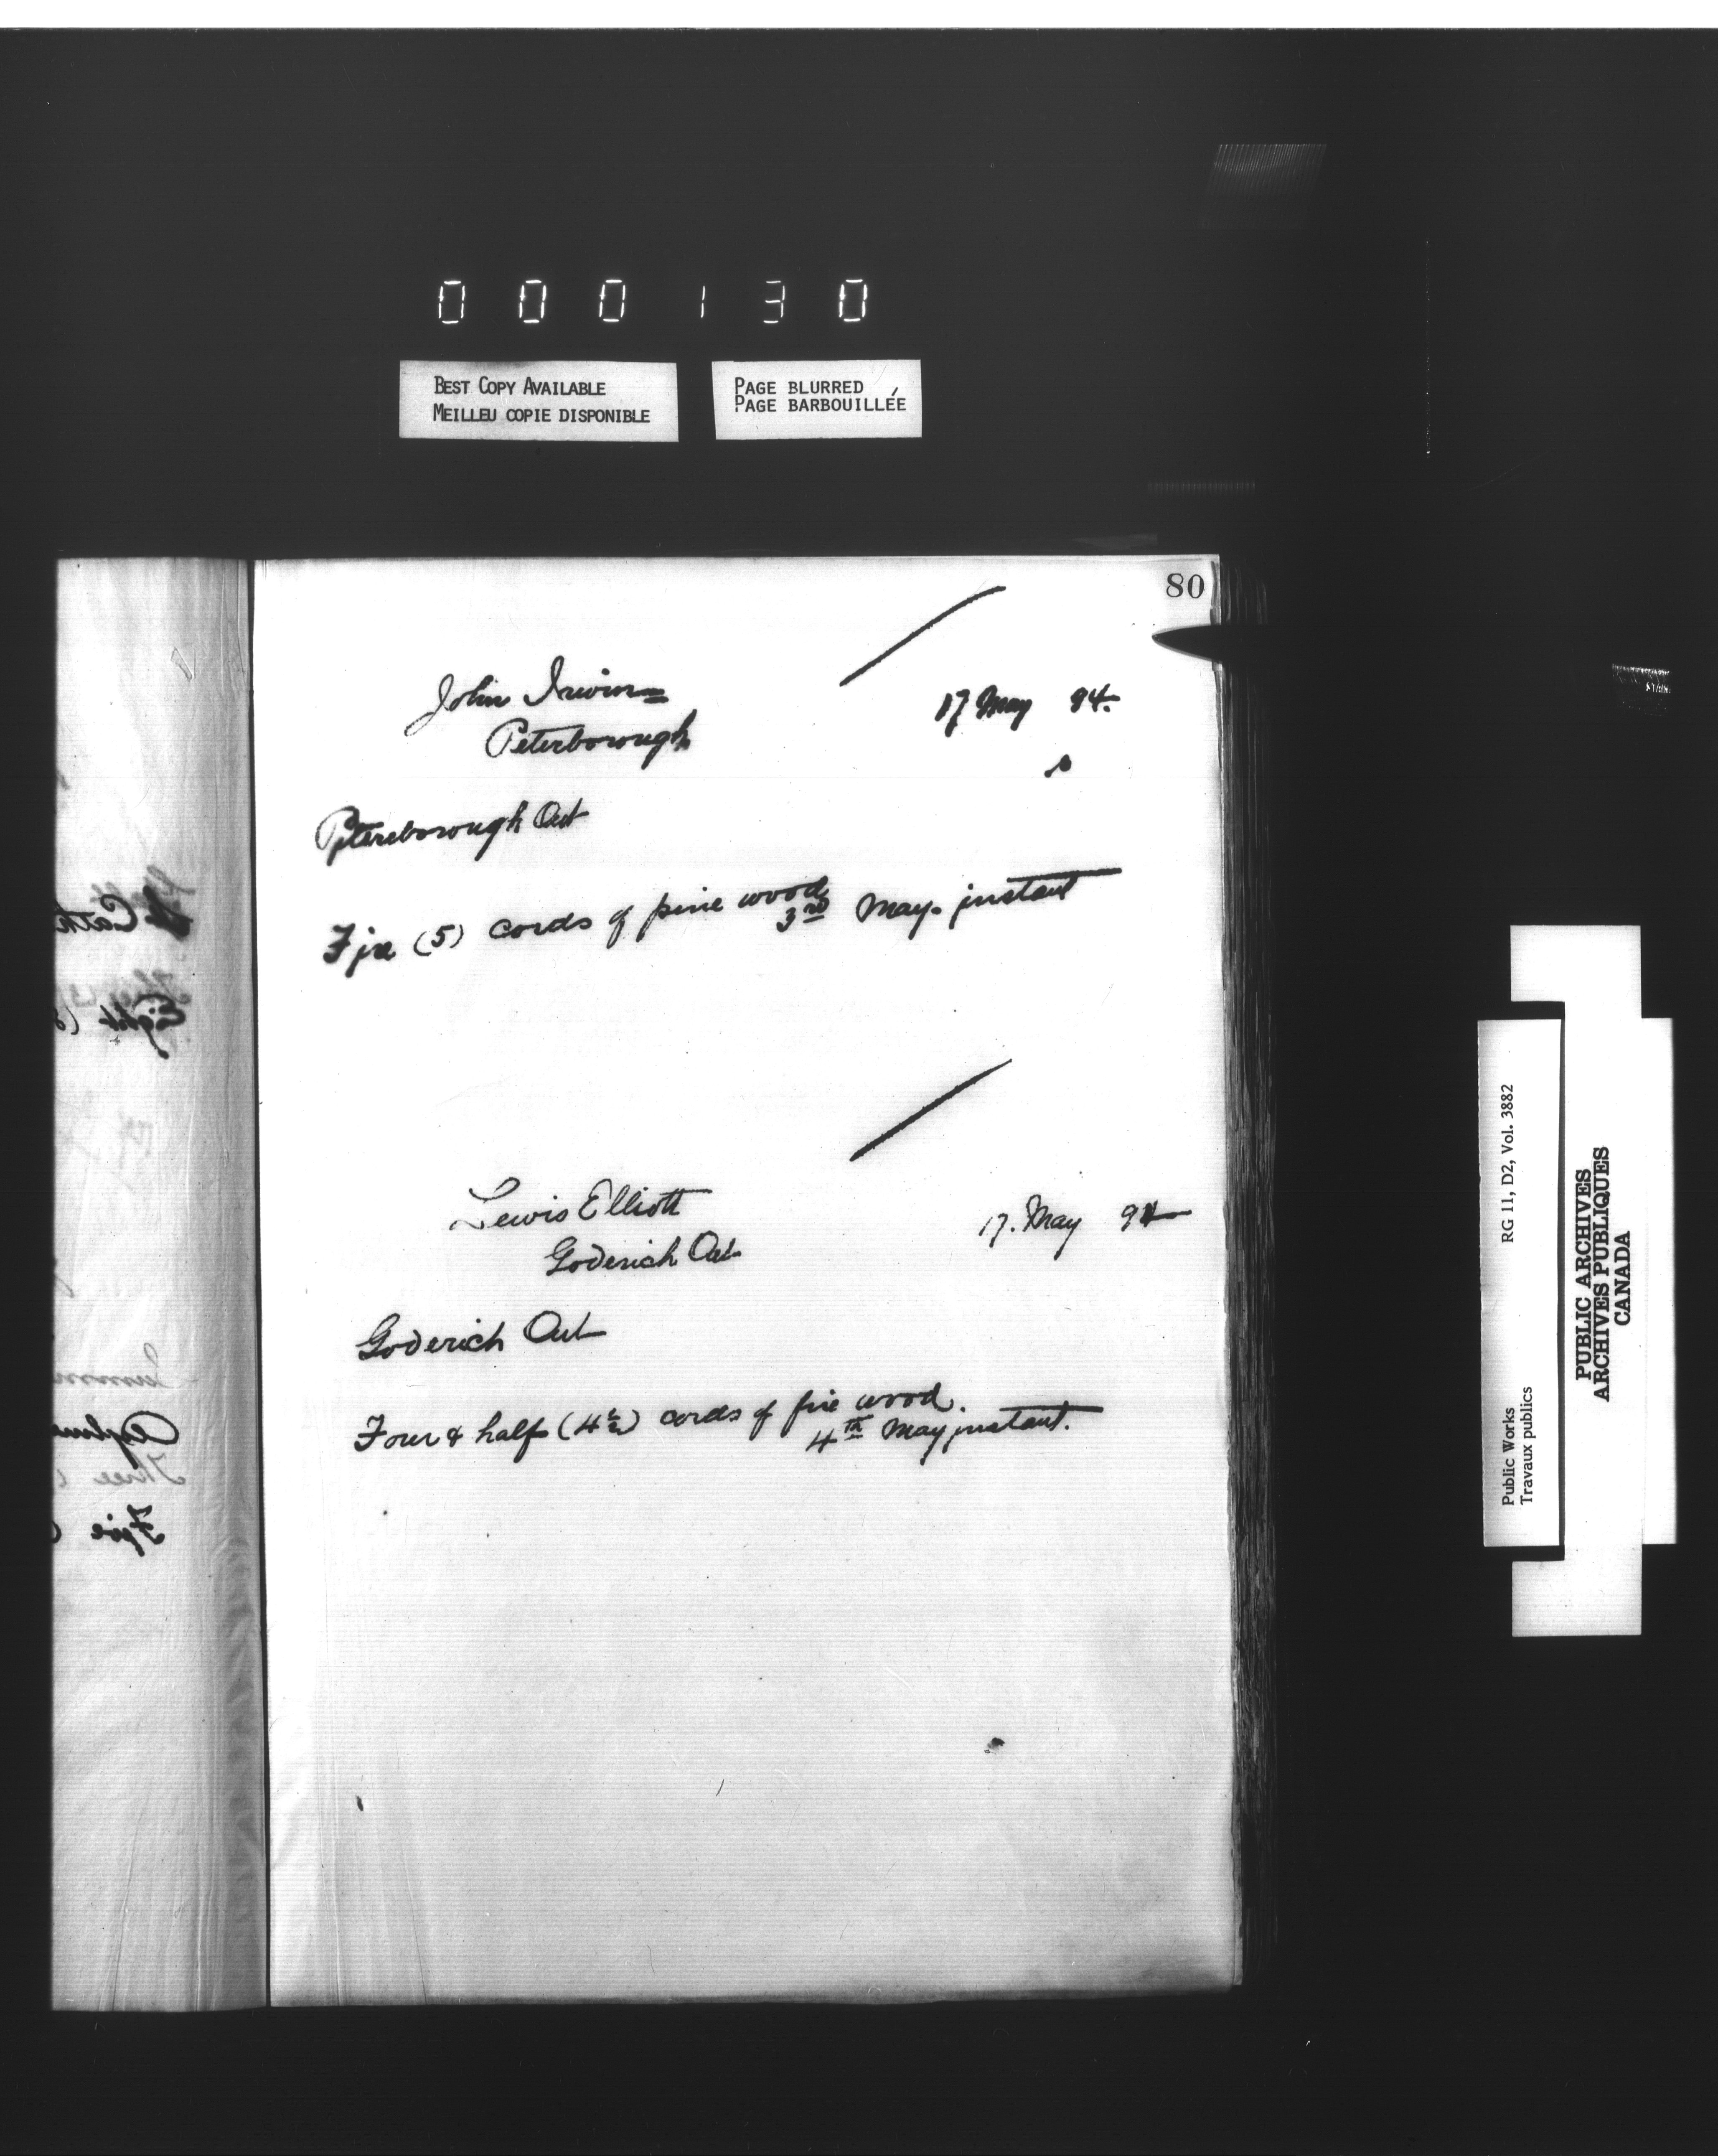 000130
BEST COPY AVAILABLE
MEILLEU COPIE DISPONIBLE
PAGE BLURRED
PAGE BARBOUILLÉE
80
John Irwin
Peterborough
17 May 94.
Peterborough Ont
Five (5) cords of pine wood
3rd May. instant
Lewis Elliott
Goderich Ont
17. May 94
Goderich Ont
Four & half (4½) cords of fire wood.
4th May instant.
Cath
Eight (
Three (
Five (
Public Works
Travaux publics
RG 11, D2, Vol. 3882
PUBLIC ARCHIVES
ARCHIVES PUBLIQUES
CANADA